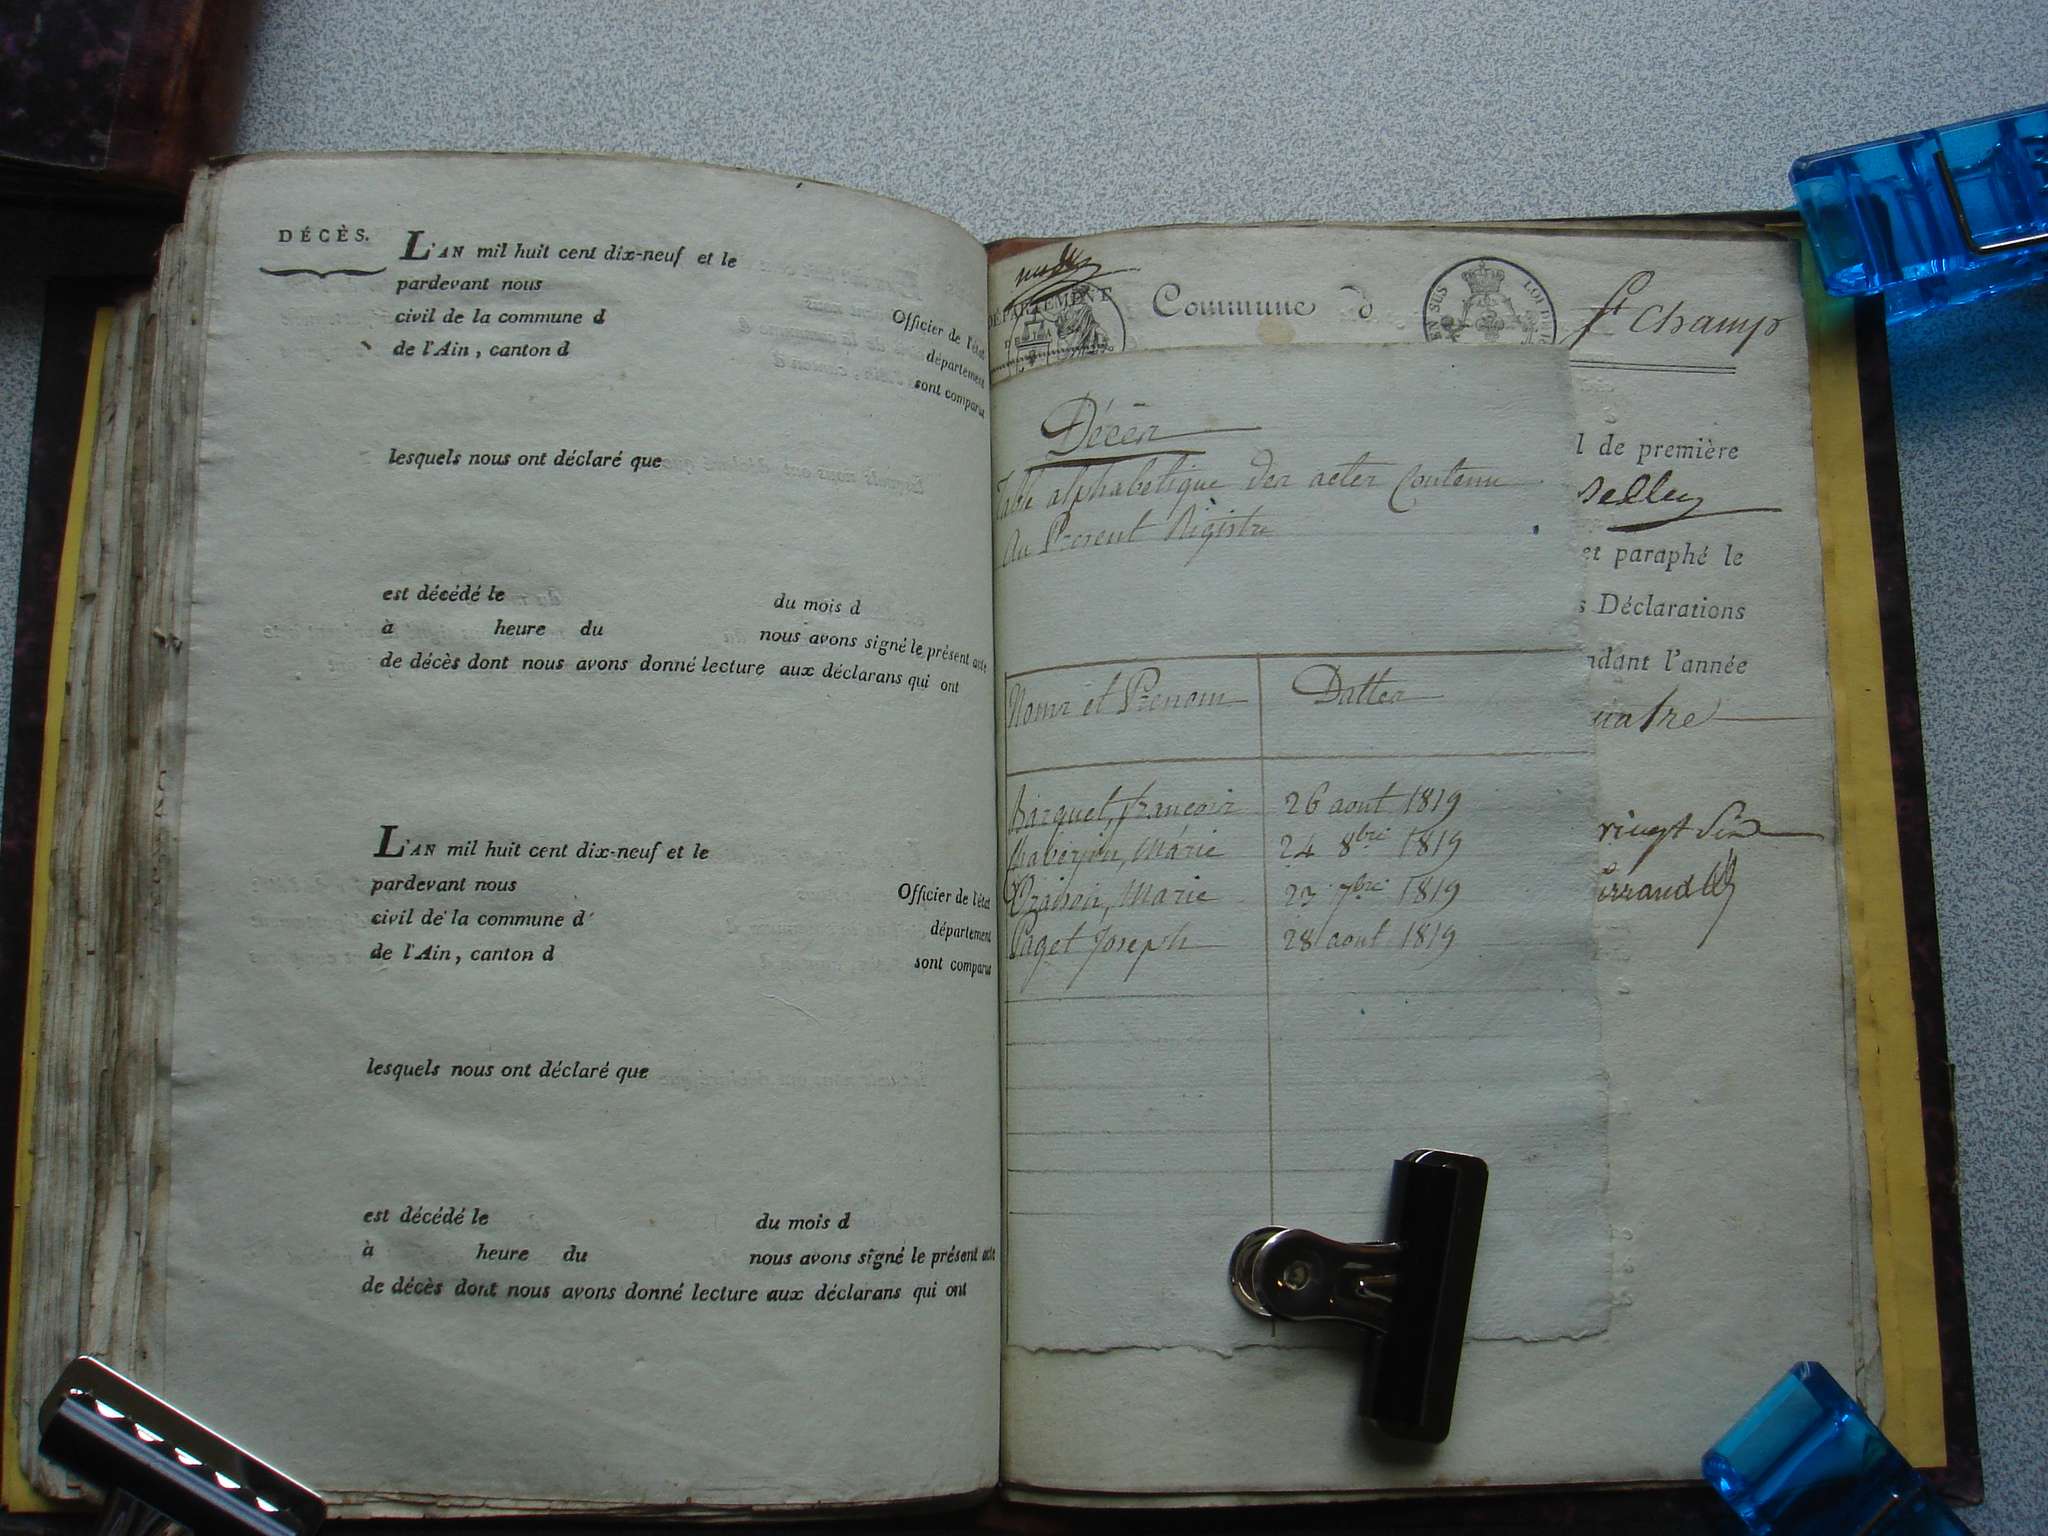 DÉCÈS.
L'AN mil huit cent dix-neuf et le
pardevant nous
Officier de l'état
civil de la commune d
département
de l'Ain, canton d
sont comparut
lesquels nous ont déclaré que
est décédé le du mois d
à heure du nous avons signé le présent acte
de décès dont nous avons donné lecture aux déclarans qui ont
L'AN mil huit cent dix-neuf et le
pardevant nous Officier de l'état
civil de la commune d département
de l'Ain, canton d sont comparut
lesquels nous ont déclaré que
est décédé le du mois d
à heure du nous avons signé le présent acte
de décès dont nous avons donné lecture aux déclarans qui ont
DÉPARTEMENT
DE L'A
EN SUS
Commune d St Champ
Décès
Table alphabetique des actes Contenu
Au Present Régistre
Noms et Prenom Dattes
francois 26 aout 1819
Marie 24 8bre 1819
Marie 23 7bre 1819
Paget Joseph 28 aout 1819
l de première
Belley
et paraphé le
s Déclarations
ndant l'année
uatre
vingt Six